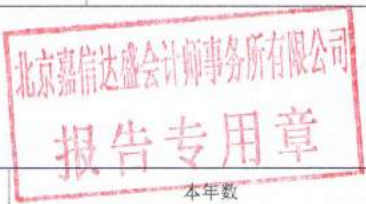 北京嘉信达盛会计师事务所有限公司
报告专用章
本年数